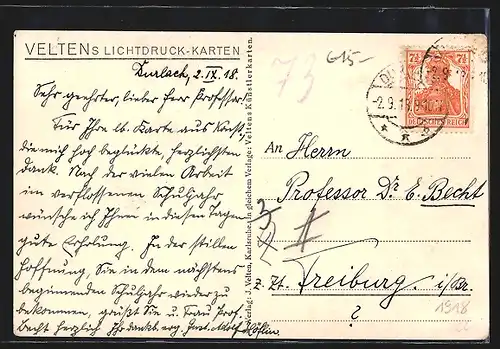 VELTENS LICHTDRUCK-KARTEN
Durlach, 2. IX. 18.
Sehr geehrter, lieber Herr Professor
Für Ihre lb. Karte aus Konst.
die mich hoch beglückte, herzlichsten
Dank. Nach der vielen Arbeit
im verflossenen Schuljahr
wünsche ich Ihnen in diesen Tagen
gute Erholung. In der stillen
Hoffnung, Sie in dem nächstens
beginnenden Schuljahr wieder zu
bekommen, grüßt Sie u. Frau Prof.
Becht herzlich Ihr dankb. erg. Adolf
Verlag: J. Velten, Karlsruhe. In gleichem Verlage: Veltens Künstlerkarten.
G15-
73
7½ 7½
DEUTSCHES REICH
-2.9.18
An Herrn
Professor Dr. E. Becht
z. Zt. Freiburg i/Br.
?
1918